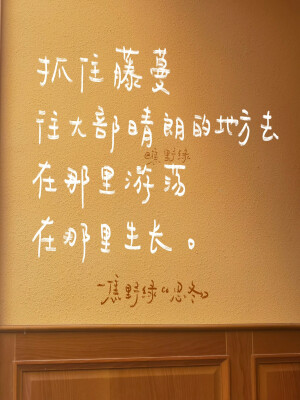 抓住藤蔓
往大部晴朗的地方去
@焦野绿
在那里游荡
在那里生长。
-焦野绿“思冬”